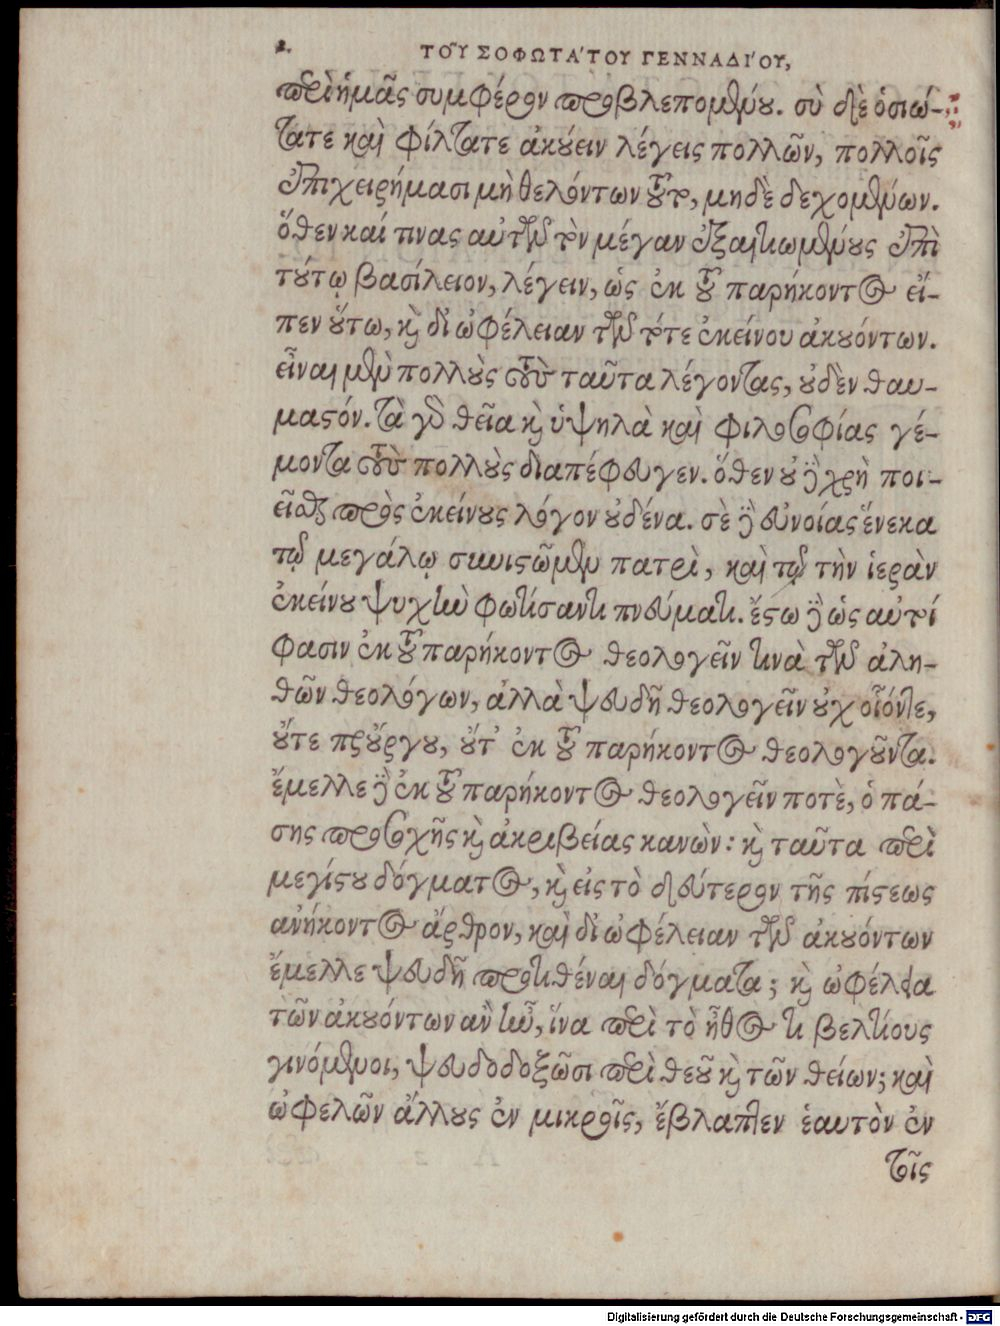 2. ΤΟΥ͂ ΣΟΦΩΤΆΤΟΥ ΓΕΝΝΑΔΊΟΥ,
περὶ ἡμᾶς συμφέρον προβλεπομένου. σὺ δὲ ὁσιώ-
τατε καὶ φίλτατε ἀκούειν λέγεις πολλῶν, πολλοῖς
ἐπιχειρήμασι μὴ θελόντων τοῦτο, μηδὲ δεχομένων.
ὅθεν καί τινας αὐτῶν τὸν μέγαν ἐξαιτιωμένους ἐπὶ
τούτῳ βασίλειον, λέγειν, ὡς ἐκ τοῦ παρήκοντος εἴ-
πεν οὕτω, καὶ δι' ὠφέλειαν τῶν τότε ἐκείνου ἀκουόντων.
εἶναι μὲν πολλοὺς τοὺς ταῦτα λέγοντας, οὐδὲν θαυ-
μαστόν. τὰ γὰρ θεῖα καὶ ὑψηλὰ καὶ φιλοσοφίας γέ-
μοντα τοὺς πολλοὺς διαπέφευγεν. ὅθεν οὐ δὲ χρὴ ποι-
εῖσθαι πρὸς ἐκείνους λόγον οὐδένα. σὲ δὲ εὐνοίας ἕνεκα
τῷ μεγάλῳ συνιστῶμεν πατρὶ, καὶ τῷ τὴν ἱερὰν
ἐκείνου ψυχὴν φωτίσαντι πνεύματι. ἔστω δὲ ὡς αὐτοί
φασιν ἐκ τοῦ παρήκοντος θεολογεῖν τινὰ τῶν ἀλη-
θῶν θεολόγων, ἀλλὰ ψευδῆ θεολογεῖν οὐχ οἷόντε,
οὔτε προὔργου, οὔτ' ἐκ τοῦ παρήκοντος θεολογοῦντα.
ἔμελλε δὲ ἐκ τοῦ παρήκοντος θεολογεῖν ποτὲ, ὁ πά-
σης προσοχῆς καὶ ἀκριβείας κανὼν: καὶ ταῦτα περὶ
μεγίστου δόγματος, καὶ εἰς τὸ δεύτερον τῆς πίστεως
ἀνήκοντος ἄρθρον, καὶ δι' ὠφέλειαν τῶν ἀκουόντων
ἔμελλε ψευδῆ προτιθέναι δόγματα; καὶ ὠφέλεια
τῶν ἀκουόντων ἂν ἦν, ἵνα περὶ τὸ ἦθος τι βελτίους
γινόμενοι, ψευδοδοξῶσι περὶ θεοῦ καὶ τῶν θείων; καὶ
ὠφελῶν ἄλλους ἐν μικροῖς, ἔβλαπτεν ἑαυτὸν ἐν
τοῖς
Digitalisierung gefördert durch die Deutsche Forschungsgemeinschaft - DFG